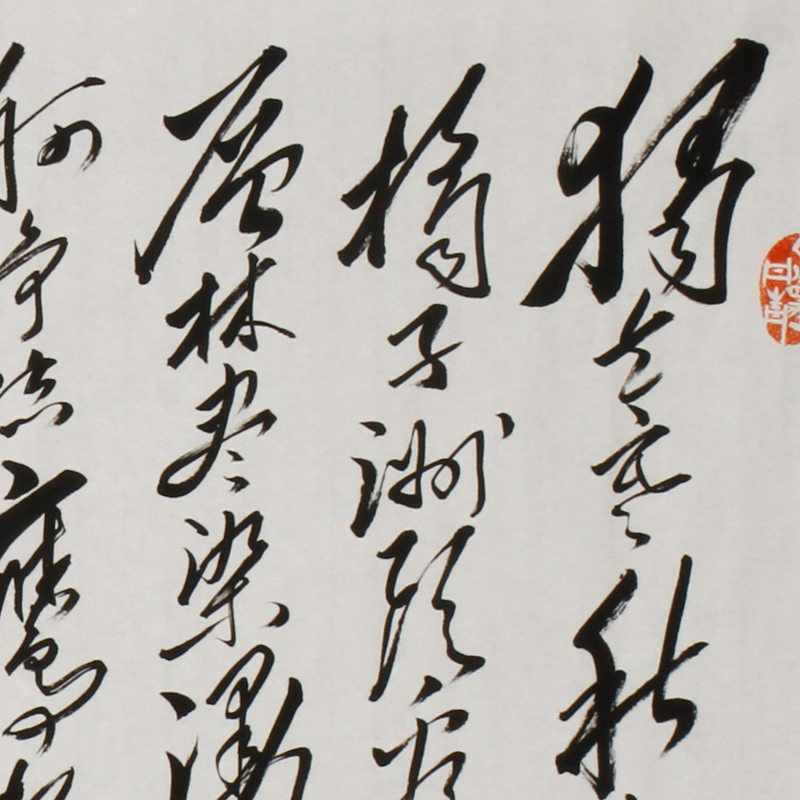 独立寒秋
橘子洲头看
层林尽染漫
舸争流鹰